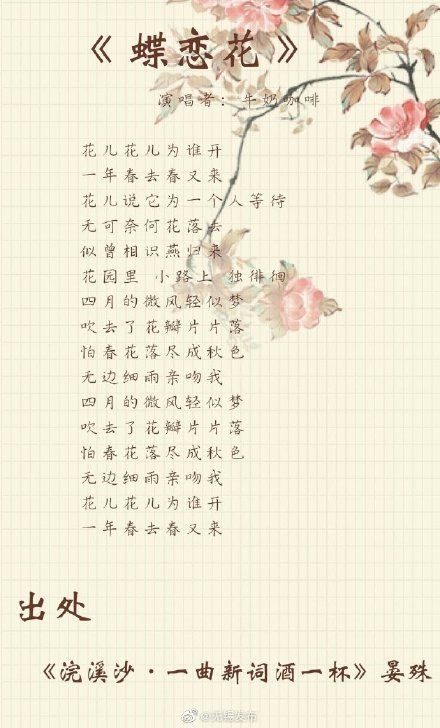 《蝶恋花》
演唱者：牛奶咖啡
花儿花儿为谁开
一年春去春又来
花儿说它为一个人等待
无可奈何花落去
似曾相识燕归来
花园里 小路上 独徘徊
四月的微风轻似梦
吹去了花瓣片片落
怕春花落尽成秋色
无边细雨亲吻我
四月的微风轻似梦
吹去了花瓣片片落
怕春花落尽成秋色
无边细雨亲吻我
花儿花儿为谁开
一年春去春又来
出处
《浣溪沙·一曲新词酒一杯》晏殊
@无锡发布